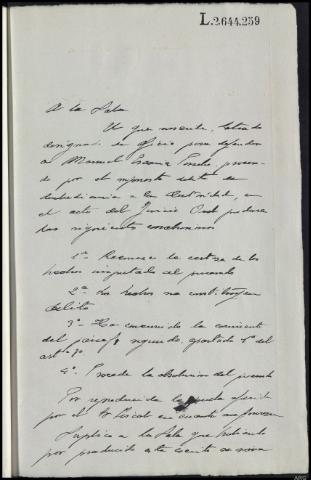 L.2.644.259
A la Sala
El que suscribe, Letrado
designado de oficio para defender
a Manuel procesa-
do por el supuesto delito de
desobediencia a la Autoridad, en
el acto del Juicio Oral
las siguientes conclusiones
1ª la certeza de los
hechos imputados al procesado
2ª Los hechos no constituyen
delito
3ª Ha concurrido la eximente
del segundo, apartado 1º del
art.
4ª Procede la absolucion del procesado
Por reproducida la prueba
por el Sr Fiscal en cuanto
Suplico a la Sala que habiendo
por producido este escrito se sirva